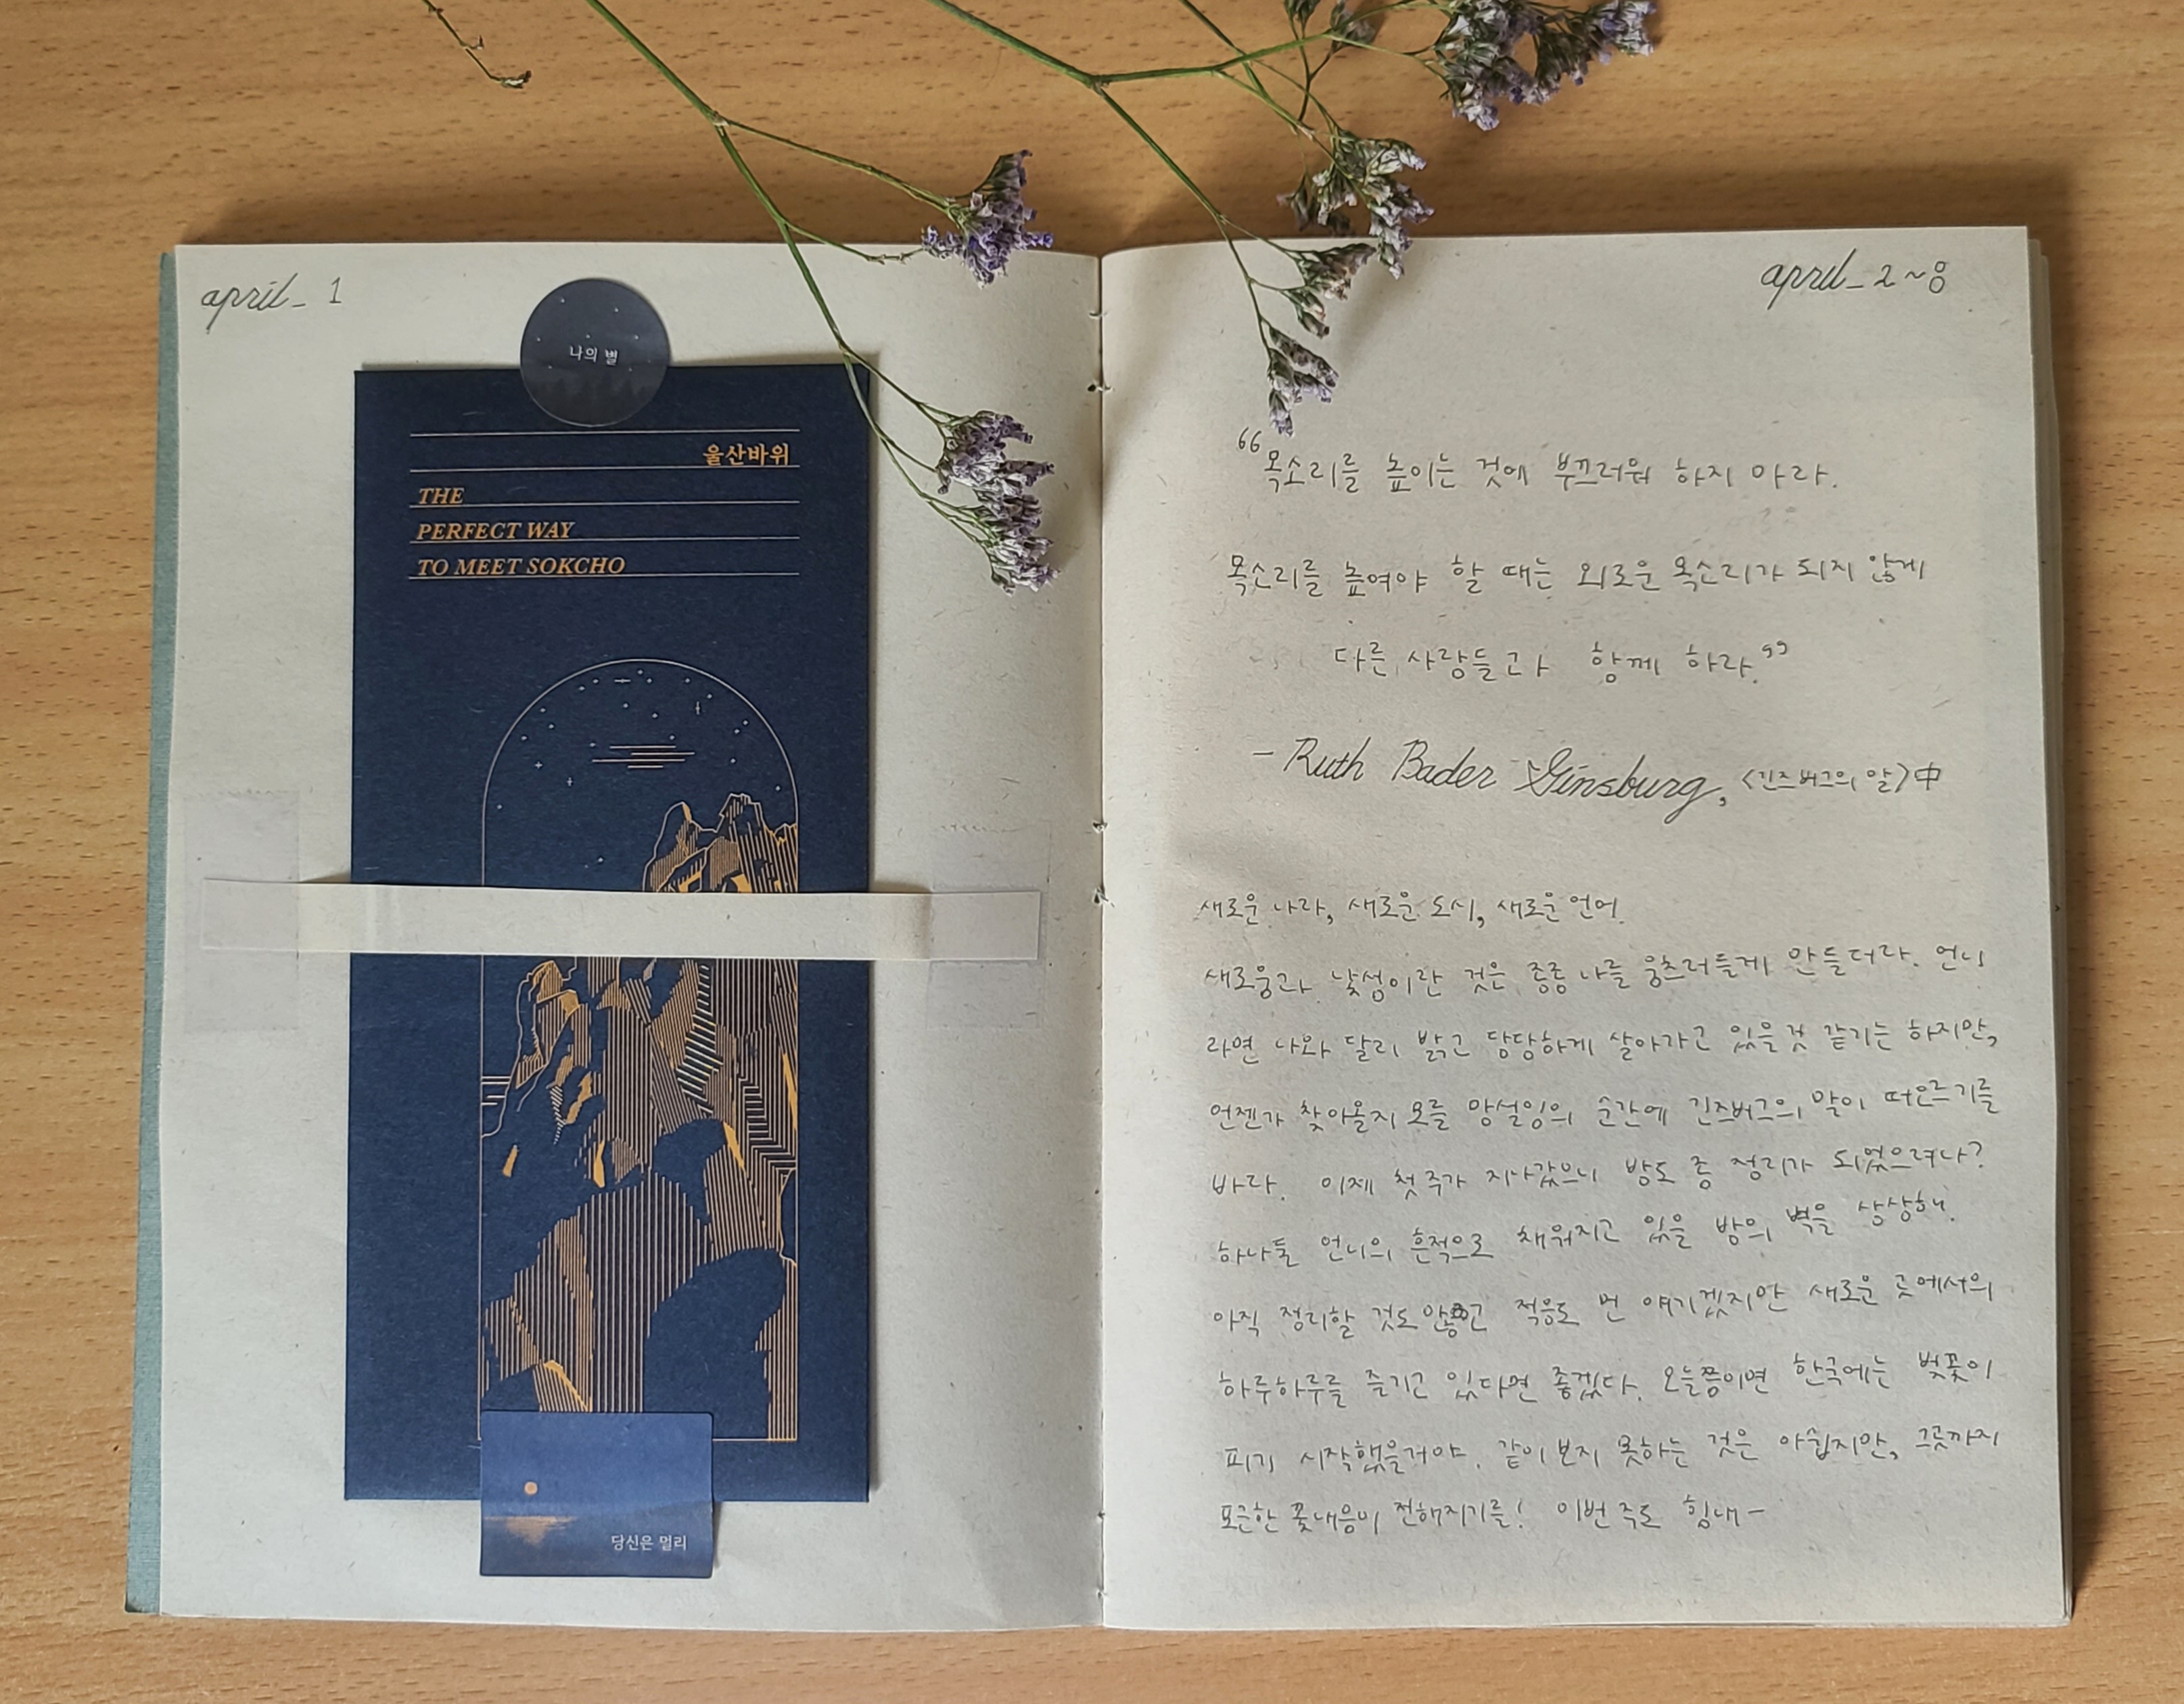 april_ 1
나의 별
울산바위
THE
PERFECT WAY
TO MEET SOKCHO
당신은 멀리
april_ 2~8
“목소리를 높이는 것에 부끄러워 하지 마라.
목소리를 높여야 할 때는 외로운 목소리가 되지 않게
다른 사람들과 함께 하라.”
- Ruth Bader Ginsburg, <긴즈버그의 말>中
새로운 나라, 새로운 도시, 새로운 언어.
새로움과 낯섦이란 것은 종종 나를 웅츠러들게 만들더라. 언니
라면 나와 달리 밝고 당당하게 살아가고 있을것 같기는 하지만,
언젠가 찾아올지 모를 망설임의 순간에 긴즈버그의 말이 떠오르기를
바라. 이제 첫 주가 지나갔으니 방도 좀 정리가 되었으려나?
하나둘 언니의 흔적으로 채워지고 있을 방의 벽을 상상해.
아직 정리할 것도 많고 적응도 먼 얘기겠지만 새로운 곳에서의
하루하루를 즐기고 있다면 좋겠다. 오늘쯤이면 한국에는 벚꽃이
피기 시작했을거야. 같이 보지 못하는 것은 아쉽지만, 그곳까지
포근한 꽃내음이 전해지기를! 이번 주도 힘내-